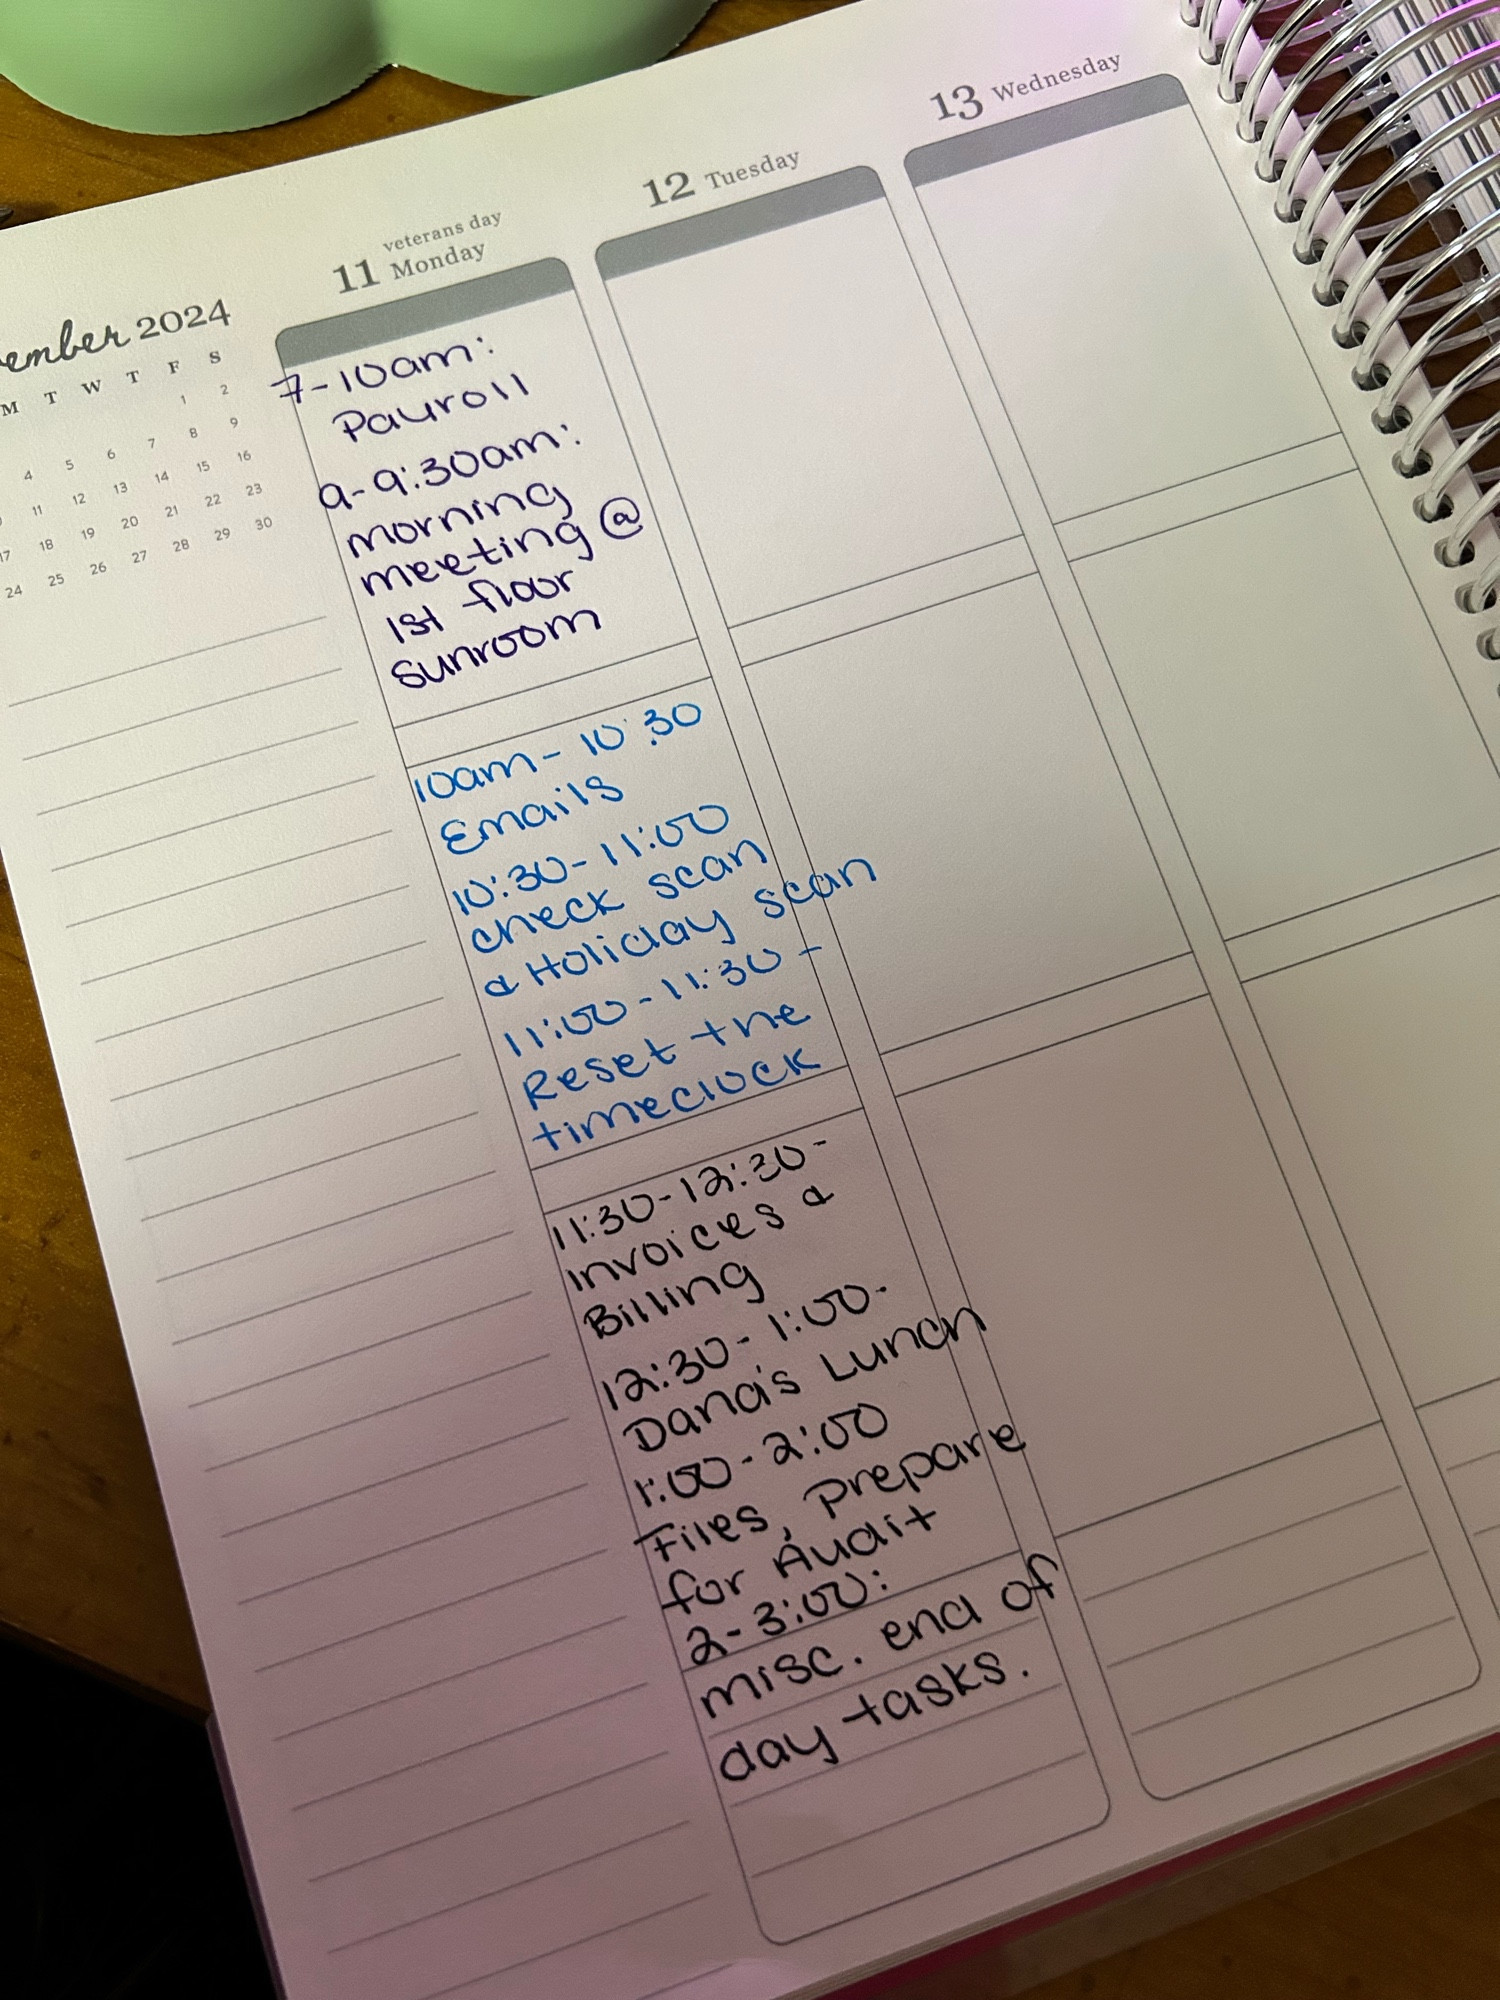 ember 2024
M T W T F S
1 2
4 5 6 7 8 9
11 12 13 14 15 16
17 18 19 20 21 22 23
24 25 26 27 28 29 30
veterans day
11 Monday
7-10am:
Payroll
9-9:30am:
morning
meeting @
1st floor
sunroom
10am-10:30
Emails
10:30-11:00
check scan
& Holiday scan
11:00-11:30-
Reset the
timeclock
11:30-12:30-
invoices &
Billing
12:30-1:00-
Dana's Lunch
1:00-2:00
Files, prepare
for Audit
2-3:00:
misc. end of
day tasks.
12 Tuesday
13 Wednesday